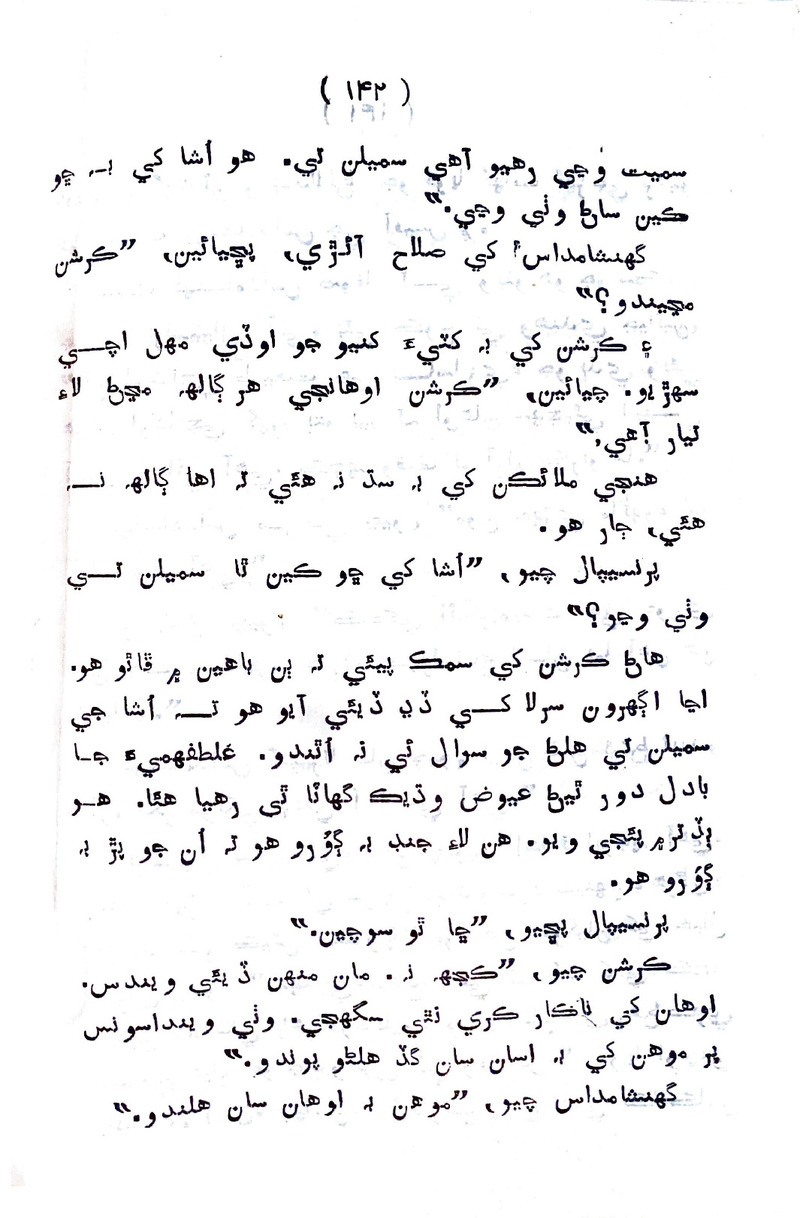 ( ۱۴۲ )
سميت وڃي رهيو آهي سميلن تي. هو اُشا کي بہ ڇو
ڪين ساڻ وٺي وڃي.“
گهنشامداس! کي صلاح آئڙي، پڇيائين، ”ڪرشن
مڃيندو؟“
۽ ڪرشن کي بہ کٽيءَ کنيو جو اوڏي مهل اچي
سهڙيو. چيائين، ”ڪرشن اوهانجي هر ڳالهہ مڃڻ لاءِ
تيار آهي.“
هنجي ملائڪن کي بہ سڌ نہ هئي تہ اها ڳالهہ نہ
هئي، ڄار هو.
پرنسيپال چيو، ”اُشا کي ڇو ڪين ٿا سميلن تي
وٺي وڃو؟“
هاڻ ڪرشن کي سمڪ پيئي تہ ٻن باهين ۾ ڦاٿو هو.
اڃا اڳهرون سرلا کي ڏڍ ڏيئي آيو هو تہ اُشا جي
سميلن تي هلڻ جو سوال ئي نہ اُٿندو. غلطفهميءَ جا
بادل دور ٿيڻ عيوض وڌيڪ گهاٽا ٿي رهيا هئا. هو
ٻڏتر ۾ پئجي ويو. هن لاءِ جنڊ بہ ڳؤرو هو تہ اُن جو پڙ بہ
ڳؤرو هو.
پرنسيپال پڇيو، ”ڇا ٿو سوچين.“
ڪرشن چيو، ”ڪجهہ نہ. مان منهن ڏيئي ويندس.
اوهان کي ناڪار ڪري نٿي سگهجي. وٺي وينداسونس
پر موهن کي بہ اسان سان گڏ هلڻو پوندو.“
گهنشامداس چيو، ”موهن بہ اوهان سان هلندو.“